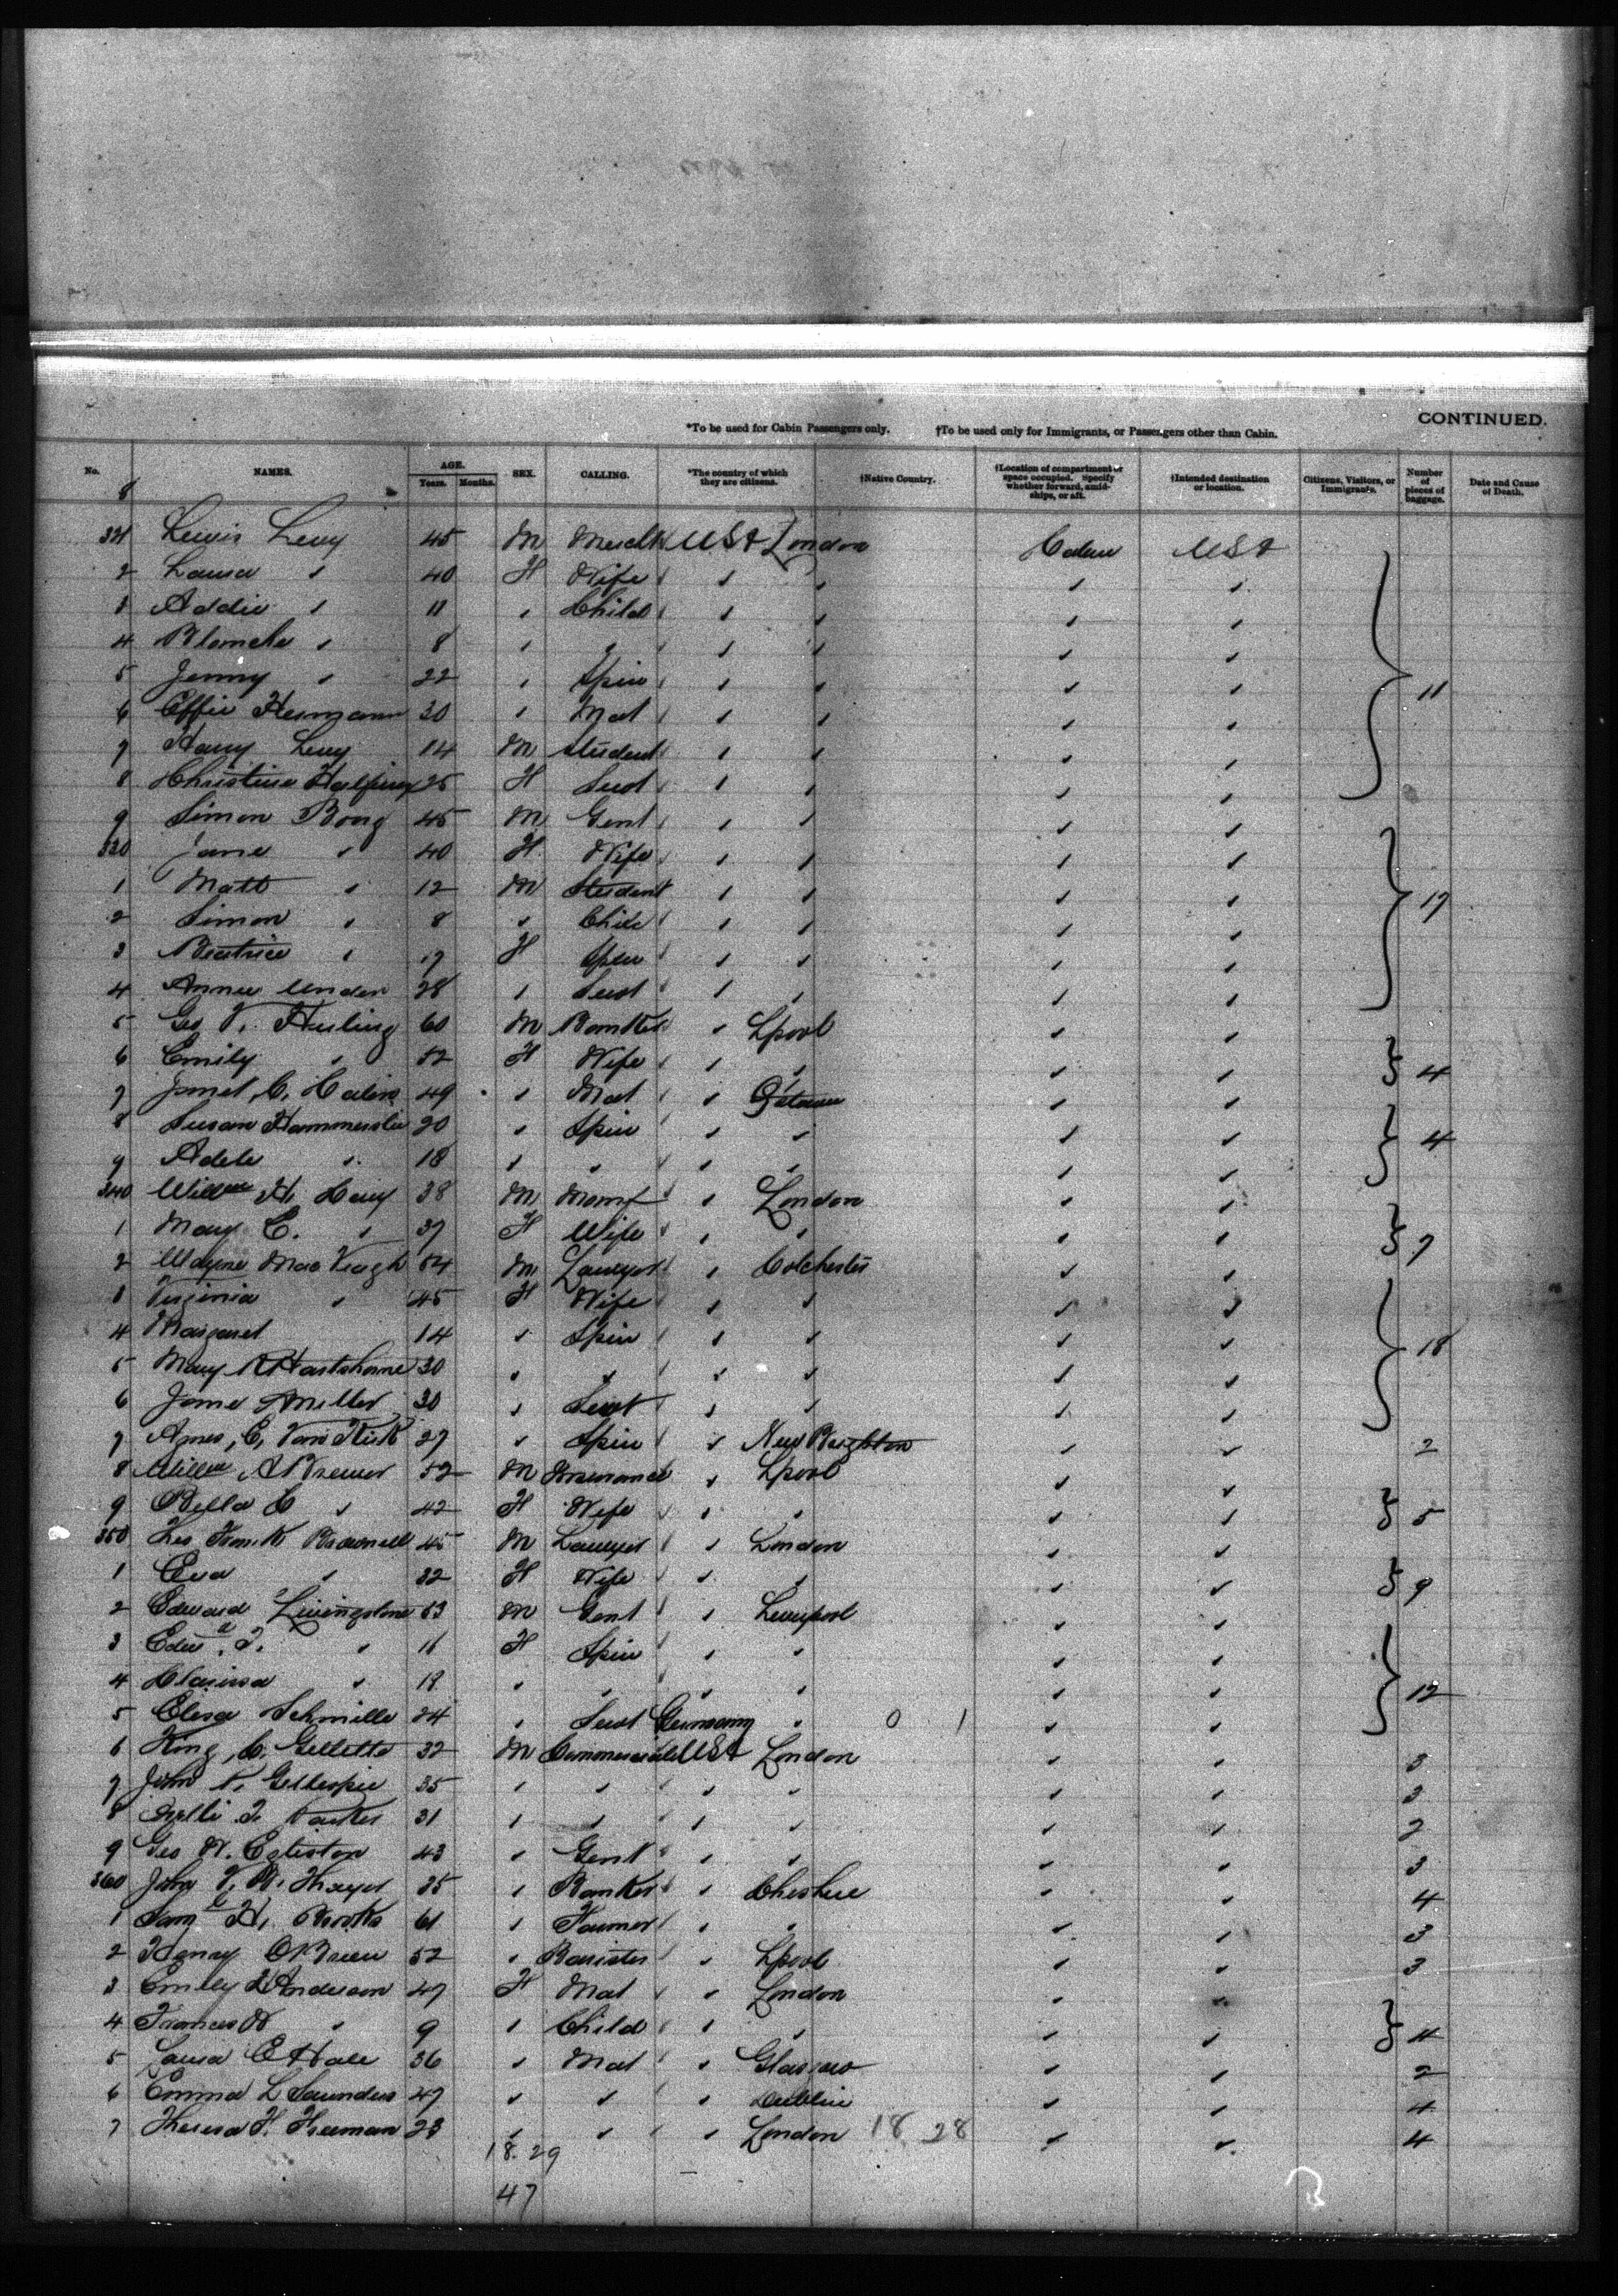 CONTINUED.
*To be used for Cabin Passengers only. †To be used only for Immigrants, or Passengers other than Cabin.
No. NAMES. AGE. Years. Months. SEX. CALLING. *The country of which they are citizens. †Native Country. †Location of compartment or space occupied. Specify whether forward, amidships, or aft. †Intended destination or location. Citizens, Visitors, or Immigrants. Number of pieces of baggage. Date and Cause of Death.
321 Lewis Levy 45 M USA London USA
2 Laura " 40 F Wife " " " "
3 Addie " 11 " Child " " " "
4 Blanche " 8 " " " " " "
5 Jenny " 22 " Spin " " " " 11
6 Effie 30 " Mat " " " "
7 Harry Levy 14 M Student " " " "
8 Christine 25 F " " " "
9 Simon 45 M Gent " " " "
330 Jane " 40 F Wife " " " "
1 Matt " 12 M Student " " " " 17
2 Simon " 8 " Child " " " "
3 Beatrice " 17 F Spin " " " "
4 Annie 28 " " " " "
5 Geo 60 M Banker " Lpool " "
6 Emily " 52 F Wife " " " " 4
7 Janet C. 49 " Mat " " "
8 Susan 20 " Spin " " " " 4
9 Adele " 18 " " " " " "
340 Willm H. 38 M Manf " London " "
1 Mary E. " 37 F Wife " " " " 7
2 Wayne Mac Veagh 54 M Lawyer " Colchester " "
3 Virginia " 45 F Wife " " " "
4 Margaret 14 " Spin " " " " 18
5 Mary R Hartshorne 30 " " " " " "
6 Jane Miller 30 " " " " "
7 Agnes, C, 27 " Spin " New Brighton " " 2
8 Willm A Brewer 52 M Insurance " Lpool " "
9 Bella C " 42 F Wife " " " " 5
350 Brownell 45 M Lawyer " London " "
1 Eva " 32 F Wife " " " " 9
2 Edward Livingstone 53 M Gent " Liverpool " "
3 Edwd. T. " 16 F Spin " " " "
4 Clarissa " 19 " " " " " " 12
5 Elisa 24 " Germany " 0 1 " "
6 King C. Gillette 32 M Commercial USA London " " 3
7 John N. Gillespie 35 " " " " " " 3
8 31 " " " " " " 2
9 Geo W. Egleston 43 " Gent " " " " 3
360 John V. R. Thayer 35 " Banker " Cheshire " " 4
1 Saml H, Brooks 61 " Farmer " " " " 3
2 Henry O'Brien 52 " Barrister " Lpool " " 3
3 Emily Anderson 47 F Mat " London " "
4 Frances W " 9 " Child " " " " 4
5 Laura E Hale 36 " Mat " Glasgow " " 2
6 Emma L Saunders 47 " " " Dublin " " 4
7 Theresa F. Freeman 23 " " " London 18 28 " " 4
18. 29
47